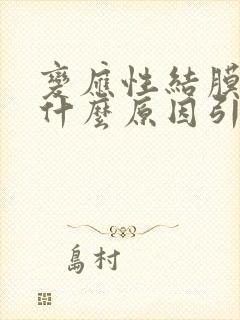 變應性結膜
什麼原因引
島村